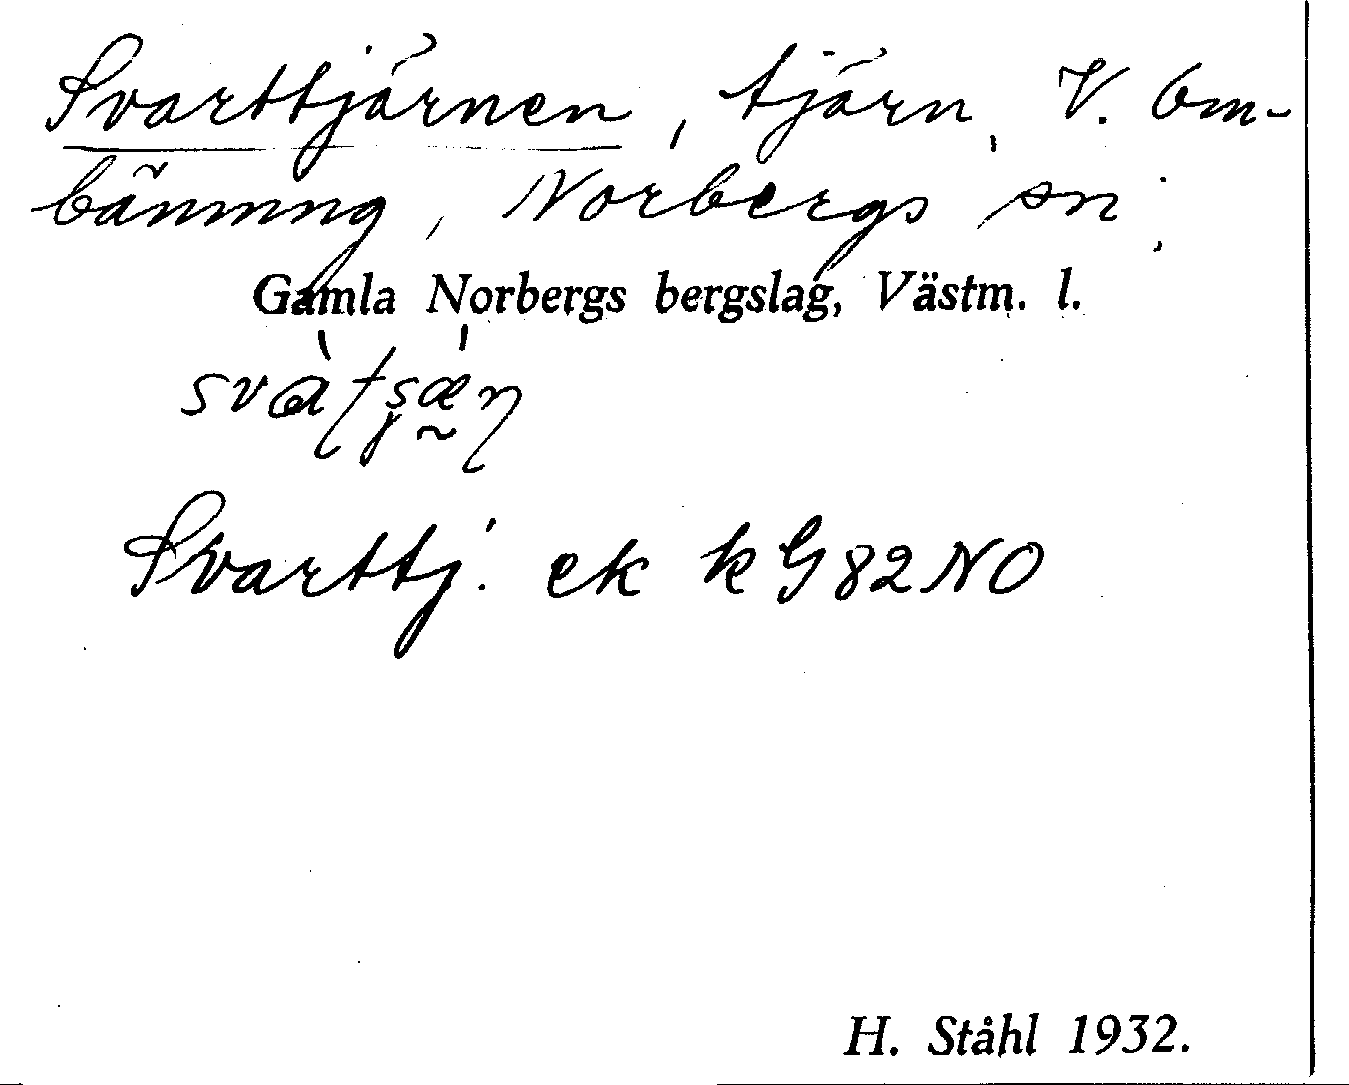 Svarttjärnen, tjärn, V. Om-
bänning, Norbergs sn
Gamla Norbergs bergslag, Västm. l.
Svarttj. ek k G82NO
H. Ståhl 1932.